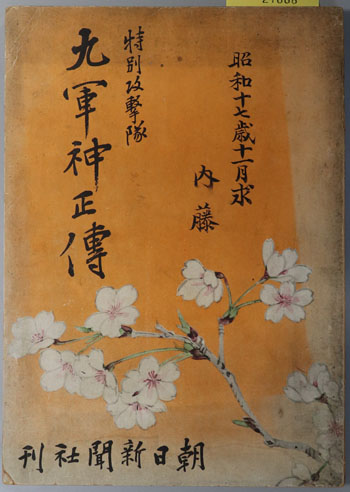 昭和十七歳十一月求
内藤
特別攻撃隊
九軍神正傳
朝日新聞社刊